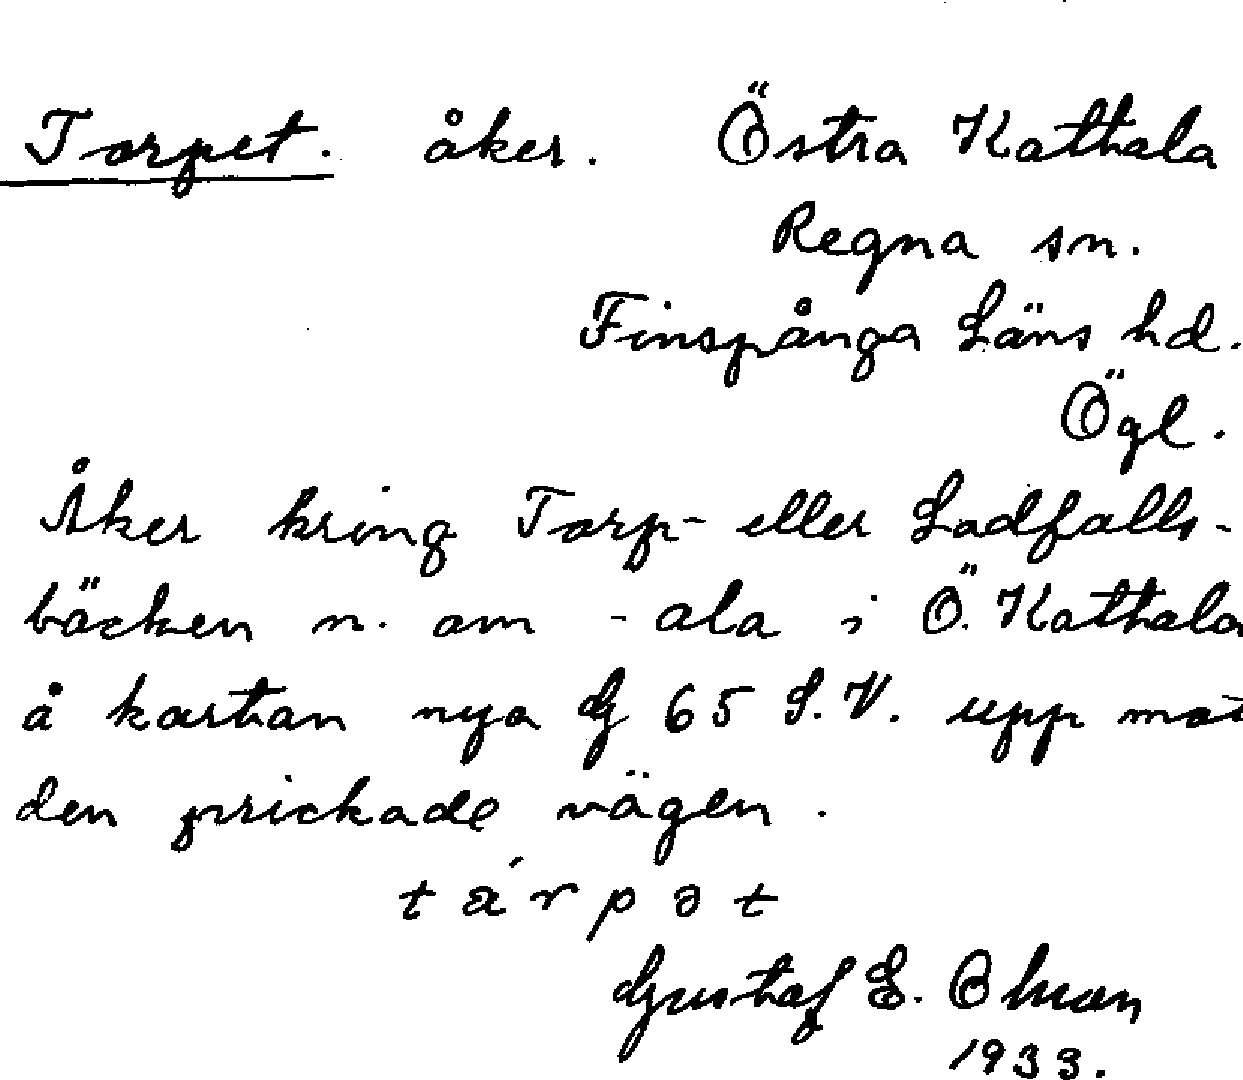 Torpet. åker. Östra Kathala
Regna sn.
Finspånga Läns hd.
Ögl.
Åker kring Torp- eller Ladfalls-
bäcken n. om -ala i Ö. Kathala
å kartan nya G 65 S.V. upp mot
den prickade vägen.
tárpət
Gustaf E. Ohman
1933.